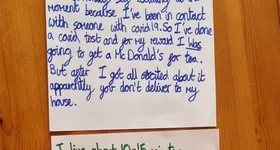 moment because I've been in contact
with someone with covid19. So I've done
a covid test and for my reward I was
going to get a McDonald's for tea.
But after I got all excited about it
apparently you don't deliver to my
house.
I live about 10-15 minutes